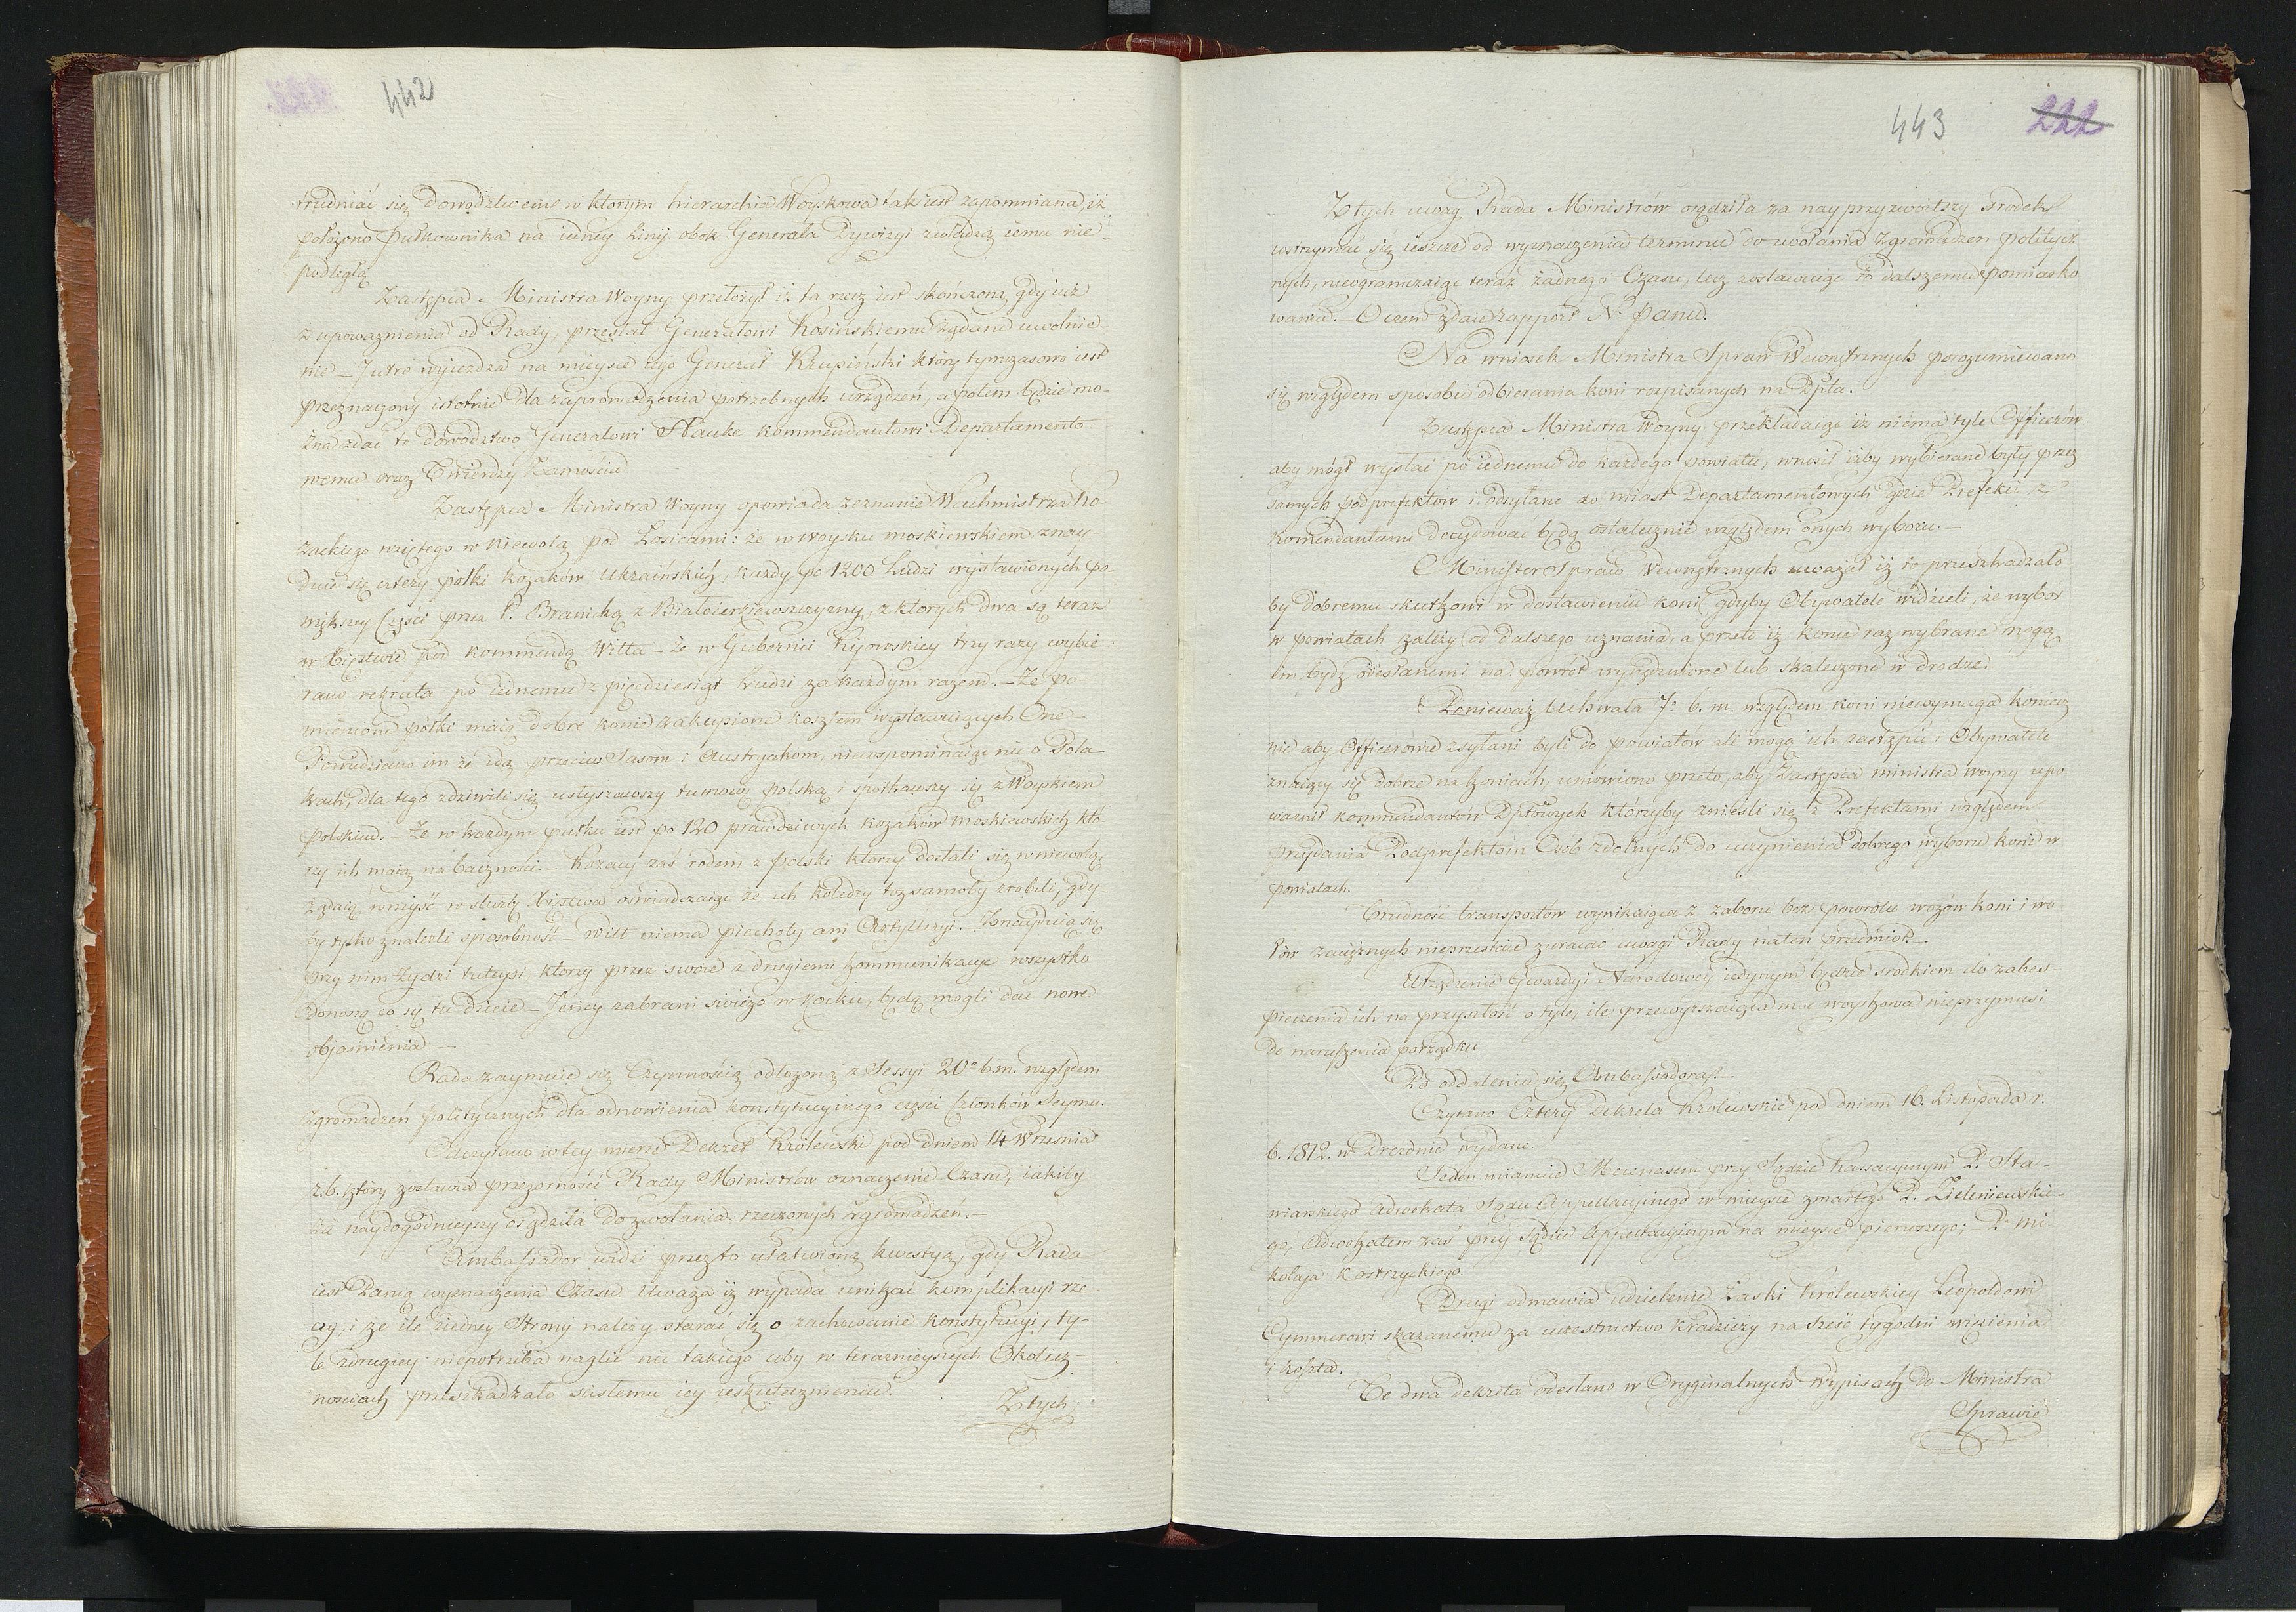 442
trudniać się Dowództwem w ktorym hierarchia Woyskowa tak iest zapomniana, iż
położono Pułkownika na iedney linij obok Generała Dywizyi z władzą iemu nie-
podległą
Zastępca Ministra Woyny przełożył iż ta rzecz iest skończoną gdy iuż
z upoważnienia od Rady, przesłał Generałowi Kosińskiemu żądane uwolnie-
nie – Jutro wyieżdża na mieysce iego Generał Krupiński który tymczasowo iest
przeznaczony istotnie dla zaprowadzenia potrzebnych urządzeń, a potem będzie mo-
żna zdać to dowództwo Generałowi Hauke kommendantowi Departamento-
wemu oraz Twierdzy Zamościa
Zastępca Ministra Woyny opowiada zeznanie Wachmistrza Ko-
zackiego wziętego w niewolą pod Łosicami: że w woysku moskiewskiem znay-
duie się cztery półki kozaków Ukraińskich, każdy po 1200 ludzi wystawionych po-
większey części przez P. Branicką z Białocerkiewszczyzny, z których dwa są teraz
w Xięstwie pod kommendą Witta – że w Gubernii Kijowskiey trzy razy wybie-
rano rekruta po iednemu z pięciudziesiąt ludzi za każdym razem. – Że po-
mienione półki maią dobre konie zakupione kosztem wystawuiących One –
Powiedziano im że idą przeciw Sasom i Austryakom, niewspominaiąc nic o Pola-
kach, dla tego zdziwili się usłyszawszy tu mowę polską i spotkawszy się z Woyskiem
Polskim. – Że w każdym pułku iest po 120 prawdziwych kozaków moskiewskich któ-
rzy ich maią na baczności. – Kozacy zaś rodem z polski ktorzy dostali się w niewolą
żądaią wniyść w służbę Xięstwa oświadczaiąc że ich koledzy toż samo by zrobili, gdy-
by tylko znaleźli sposobność – Witt niema piechoty ani Artylleryi. – Znayduią się
przy nim Żydzi tuteysi ktorzy przez swoie z drugiemi kommunikacye wszystko
donoszą co się tu dzieie – Jeńcy zabrani świeżo w Kocku, będą mogli dać nowe
obiaśnienia –
Rada zaymuie się Czynnością odłożoną z Sessyi 20° b.m. względem
zgromadzeń politycznych dla odnowienia konstytucyinego części Członków Seymu.
Odczytano w tey mierze Dekret Królewski pod dniem 14 Września
r.b. który zostawia przezorności Rady Ministrów oznaczenie Czasu, iakiby
za naydogodnieyszy osądziła do zwołania rzeczonych zgromadzeń. –
Ambassador widzi przez to ułatwioną kwestyą, gdy Rada
iest Panią wyznaczenia Czasu. Uważa iż wypada unikać komplikacyi rze-
czy; i że ile z iedney Strony należy starać się o zachowanie konstytucyi, ty-
le z drugiey niepotrzeba naglić nic takiego coby w teraznieyszych Okolicz-
nosciach przeszkadzało sistemu iey uskutecznieniu.
Z tych
443
222
Z tych uwag Rada Ministrów osądziła za nayprzyzwoitszy srodek
wstrzymać się ieszcze od wyznaczenia terminu do zwołania Zgromadzeń politycz-
nych, nieograniczaiąc teraz żadnego Czasu, lecz zostawuiąc to dalszemu pomiarko-
waniu. – O czem zdaie rapport N. Panu.
Na wniosek Ministra Spraw Wewnętrznych porozumiewano
się względem sposobu odbierania koni rozpisanych na Dpta.
Zastępca Ministra Woyny przekładaiąc iż niéma tyle Officerów
aby mógł wysłać po iednemu do każdego powiatu, wnosił iżby wybierane były przez
samych podprefektów i odsyłane do miast Departamentowych gdzie Prefekci z
Komendantami Decydować będą ostatecznie względem onych wyboru. –
Minister Spraw Wewnętrznych uważał iż to przeszkadzało-
by dobremu skutkowi w dostawieniu koni gdyby Obywatele widzieli, że wybor
w powiatach zależy od dalszego uznania, a przeto iż konie raz wybrane mogą
im bydź odesłanemi na powrót wynędznione lub skaleczone w drodze.
Ponieważ Uchwała 7° b. m. względem koni niewymaga koniecz-
nie aby Officerowie zsyłani byli do powiatów ale mogą ich zastąpić i Obywatele
znaiący się dobrze na koniach, umówiono przeto, aby Zastępca ministra woyny upo-
ważnił kommendantów Dptowych którzyby znieśli się z Prefektami względem
przydania Podprefektom Osób zdolnych do uczynienia dobrego wyboru koni w
powiatach.
Trudność transportów wynikaiąca z zaboru bez powrotu wozów koni i wo-
łów zaciężnych nieprzestaie zwracać uwagi Rady na ten przedmiot. –
Urządzenie Gwardyi Narodowey iedynym będzie srodkiem do zabes-
pieczenia ich na przyszłość o tyle, ile przewyższaiąca moc woyskowa nieprzymusi
do naruszenia porządku
Po oddaleniu się Ambassadora. –
Czytano Cztery Dekreta Krolewskie pod dniem 16. Listopada r.
b. 1812. w Dreznie wydane.
Jeden mianuie Mecenasem przy Sądzie Kassacyinym P. Sta-
wiarskiego Adwokata Sądu Appellacyinego w mieysce zmarłego P. Zieleniewskie-
go; Adwokatem zaś przy Sądzie Appellacyinym na mieysce pierwszego; P. Mi-
kołaja Kostrzyckiego.
Drugi odmawia udzielenie Łaski Królewskiey Leopoldowi
Cymmerowi skazanemu za uczestnictwo kradzieży na sześć tygodni więzienia
i koszta.
Te dwa dekreta odesłano w Oryginalnych Wypisach do Ministra
Sprawie